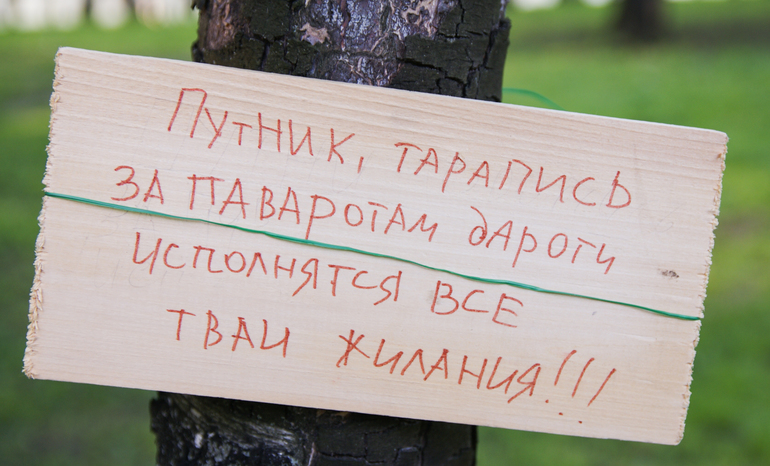 Путник, тарапись
за паваротам дароги
исполнятся все
тваи жилания!!!